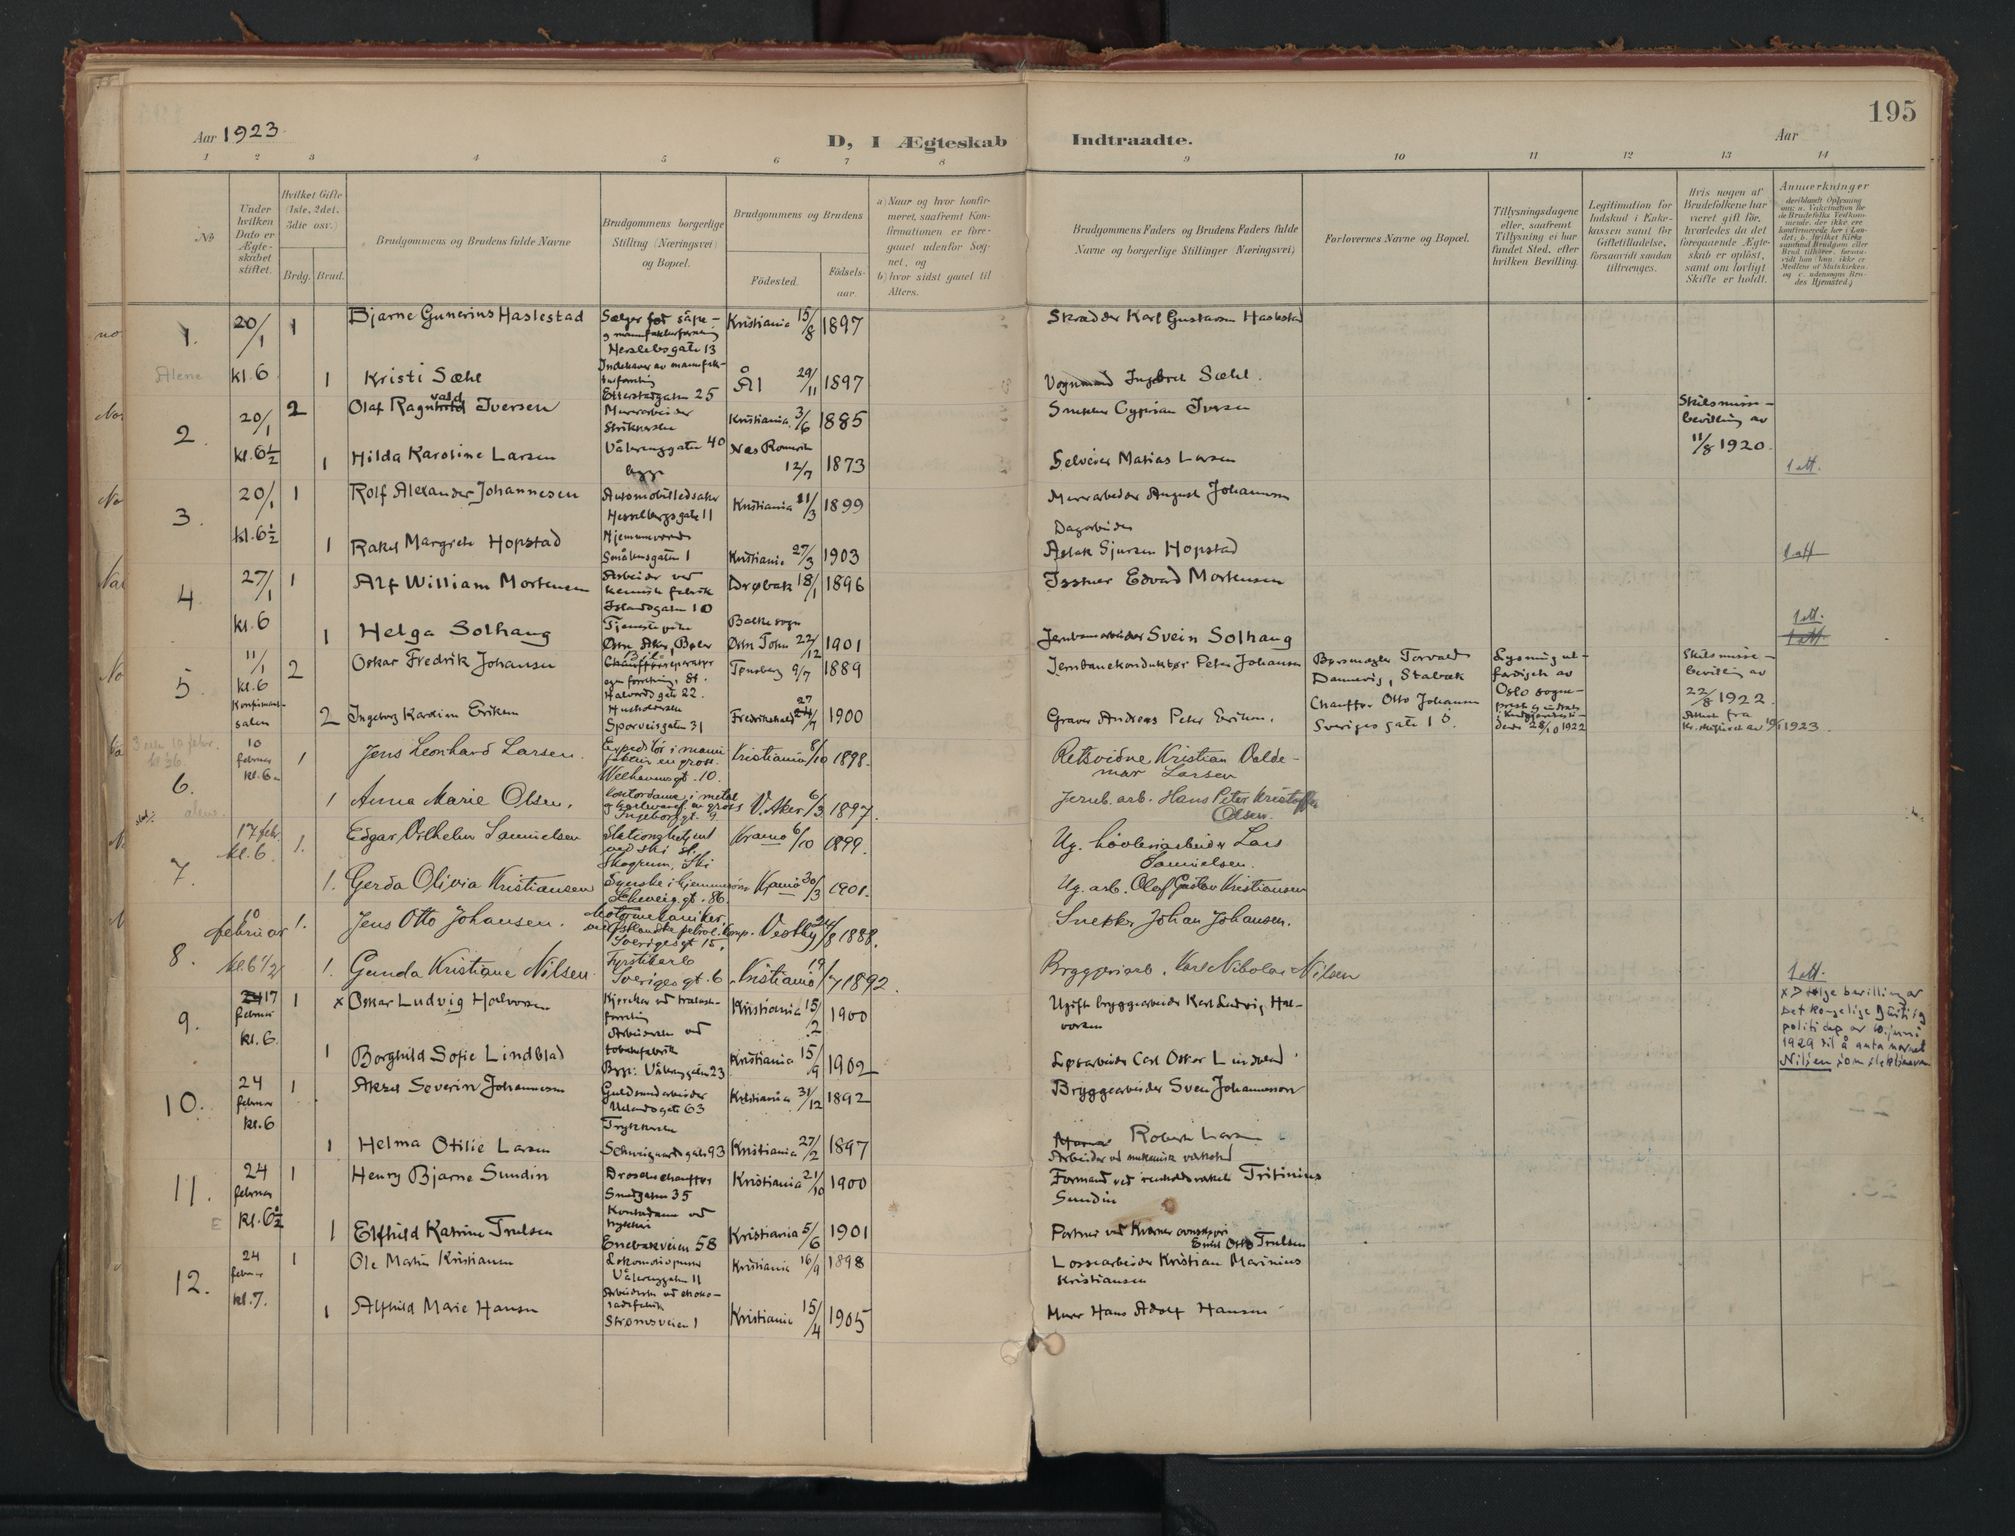 195
Aar 1923.
D, I Ægteskab Indtraadte.
Aar
1 2 3 4 5 6 7 8 9 10 11 12 13 14
No
Under hvilken Dato er Ægteskabet stiftet.
Hvilket Gifte (1ste, 2det, 3die osv.)
Brdg. Brud.
Brudgommens og Brudens fulde Navne
Brudgommens borgerlige Stilling (Næringsvei) og Bopæl.
Brudgommens og Brudens
Fødested.
Fødselsaar.
a) Naar og hvor konfirmeret, saafremt Konfirmationen er foregaaet udenfor Sognet, og
b) hvor sidst gaaet til Alters.
Brudgommens Faders og Brudens Faders fulde Navne og borgerlige Stillinger (Næringsvei)
Forlovernes Navne og Bopæl.
Tillysningsdagene eller, saafremt Tillysning ei har fundet Sted, efter hvilken Bevilling.
Legitimation for Indskud i Enkekassen samt for Giftetilladelse, forsaavidt saadan tiltrænges.
Hvis nogen af Brudefolkene har været gift før, hvorledes da det foregaaende Ægteskab er opløst, samt om lovligt Skifte er holdt.
Anmærkninger
1. 20/1 1 Bjarne Gunerius Haslestad Sælger Herslebsgate 13 Kristiania 15/8 1897 Skrædder Karl Gustavsen Haslestad
Alene kl. 6 1 Kristi Sæhl Etterstadgaten 25 Ål 29/11 1897 Vognmand Sæhl.
2. 20/1 2 Olaf Ragnvald Iversen Murerarbeider Kristiania 3/6 1885 Snekker Cyprian Iversen Skilsmissebevilling av 11/8 1920.
kl. 6½ 1 Hilda Karoline Larsen Vålerenggaten 40 begge Nes Romerik 12/7 1873 Selveier Matias Larsen 1 att.
3. 20/1 1 Rolf Alexander Johannesen Hesselbergsgate 11 Kristiania 11/3 1899 Murerarbeider August Johannesen
kl. 6½ 1 Rakel Margrete Hopstad Hjemmeværende Smålensgaten 1 Kristiania 27/3 1903 Dagarbeider Aslak Sjursen Hopstad 1 att
4. 27/1 1 Alf William Mortensen Arbeider ved kemisk fabrik Islandsgaten 10 Drøbak 18/1 1896 Edvard Mortensen
kl. 6 1 Helga Solhaug Tjenestepike Østre Aker, Balke sogn Østre Toten 22/12 1901 Jernbanearbeider Svein Solhaug 1 att.
5. 11/1 kl. 6 Konfirmantsalen 2 Oskar Fredrik Johansen egen forretning, St. Halvards gate 22. Tønsberg 9/7 1889 Jernbanekonduktør Peter Johansen Torvald Dannevig, Stabæk Lysning utfærdiget av Oslo sogneprest Skilsmissebevilling av 22/8 1922
2 Ingeborg Karoline Eriksen Husholderske Sporveisgaten 31 Fredrikshald 27/7 1900 Graver Andreas Peter Eriksen. Chauffør Otto Johansen Sverigesgate 15. 28/10 1922 Attest fra 1923.
6. 10 februar kl. 6 1 Jens Leonhard Larsen. Welhavensgt. 10. Kristiania 8/10 1898. Retsvidne Kristian Valdemar Larsen
alene. 1 Anna Marie Olsen. Ingeborggt. 9 V. Aker 6/3 1897. Jernb. arb. Hans Peter Kristoffer Olsen.
7. 17 febr. kl. 6. 1. Edgar Vilhelm Samuelsen Stationsbetjent ved Ski st. Skogrum, Ski Kramo 6/10 1899. Ug. høvleriarbeider Lars Samuelsen.
1. Gerda Olivia Kristiansen Schweig.gt. 86. 30/3 1901. Ug. arb. Olaf Gustav Kristiansen
8. 10 februar 1. Jens Otto Johansen. Motormekaniker Østlandske petrol. komp. Sverigesgt 15. Vestby 24/8 1888. Snekker Johan Johansen.
kl. 6 1/2 1. Gunda Kristiane Nilsen. Fyrstikarb Sverigesgt. 6 Kristiania 19/7 1892. Bryggeriarb. Karl Nikolai Nilsen 1 att.
9. 17 februar kl. 6. 1 x Oskar Ludvig Halvorsen Kristiania 15/2 1900 Ugift bryggearbeider Karl Ludvig Halvorsen
x Ifølge bevilling av Det kongelige Justis og politidep av 10. juni 1929 til å anta navnet Nilsen som slektsnavn
1 Borghild Sofie Lindblad Arbeiderske ved tobaksfabrik Begge: Vålerenggaten 23 Kristiania 15/9 1902 Løsarbeider Carl Oskar Lindblad
10. 24 februar kl. 6 1 Aksel Severin Johannesen Uelandsgate 63 Kristiania 31/12 1892 Bryggearbeider Sven Johannesson
1 Helma Otilie Larsen Trykkerske Schweigaardsgate 93 Kristiania 27/2 1897 Robert Larsen Arbeider ved mekanisk verksted
11. 24 februar kl. 6½ 1 Henry Bjarne Sundin Droschechauffør Smedgaten 35 Kristiania 21/10 1900 Formand ved renholdsverket Tritinius Sundin
1 Elfhild Katrine Trulsen Kontordame ved trykkeri Enebakveien 58 Kristiania 5/6 1901 Portner ved Kværner Emil Otto Trulsen
12. 24 februar kl. 7. 1 Ole Martin Kristiansen Lokomotivpusser Vålerenggaten 11 Kristiania 16/9 1898 Lossearbeider Kristian Marinius Kristiansen
1 Alfhild Marie Hansen Arbeiderske ved chokoladefabrik Strømsveien 1 Kristiania 15/4 1905 Murer Hans Adolf Hansen